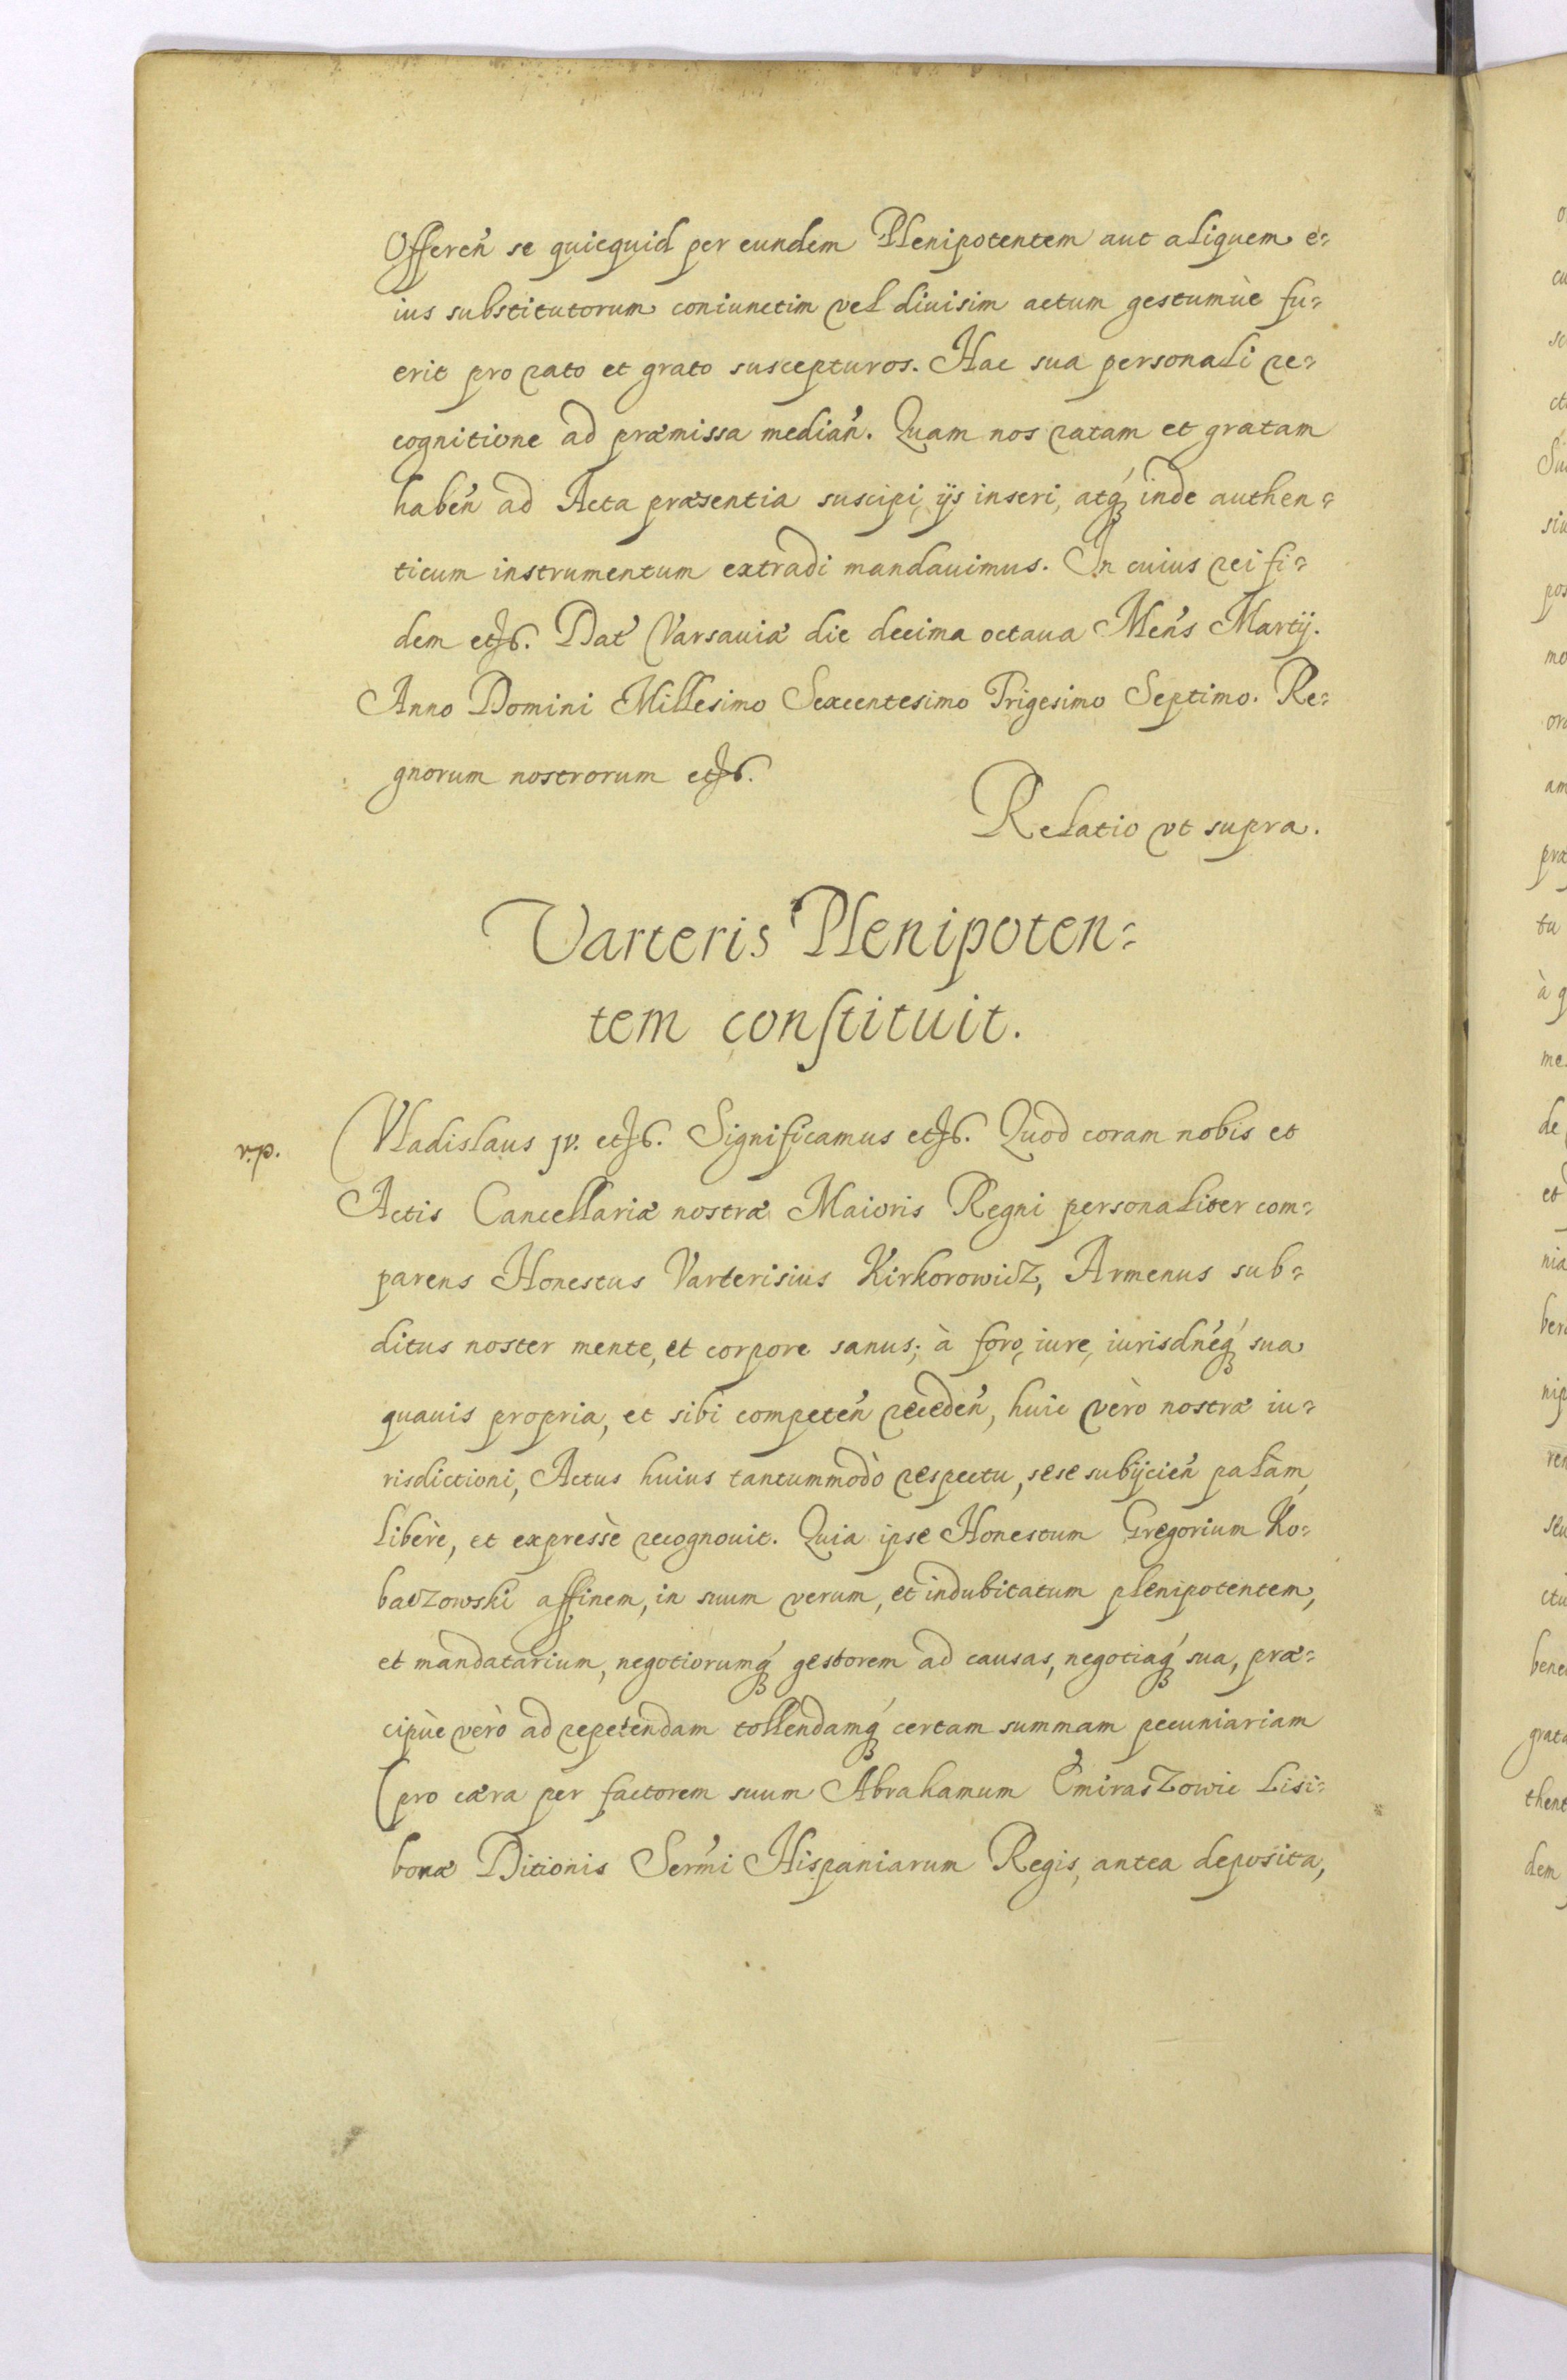 Offereń se quicquid per eundem Plenipotentem aut aliquem e=
ius substitutorum coniunctim vel diuisim actum gestumùe fu=
erit pro rato et grato suscepturos. Hac sua personali re=
cognitione ad præmissa mediań. Quam nos ratam et gratam
habeń ad Acta præsentia suscipi, ijs inseri, atq́ inde authen=
ticum instrumentum extradi mandauimus. In cuius rei fi=
dem etc. Dat́ Varsauiæ die decima octaua Meńs Martij.
Anno Domini Millesimo Sexcentesimo Trigesimo Septimo. Re=
gnorum nostrorum etc.
Relatio vt supra.
Varteris Plenipoten=
tem conſtituit.
v.p.
Vladislaus jv. etc. Significamus etc. Quod coram nobis et
Actis Cancellariæ nostræ Maioris Regni personaliter com=
parens Honestus Varterisius Kirkorowicz, Armenus sub=
ditus noster mente, et corpore sanus; à foro, iure, iurisdńeq́ sua
quauis propria, et sibi competeń recedeń, huic verò nostræ iu=
risdictioni, Actus huius tantummodò respectu, sese subijcień palàm,
liberè, et expressè recognouit. Quia ipse Honestum Gregorium Ko=
baczowski affinem, in suum verum, et indubitatum plenipotentem,
et mandatarium, negotiorumq́ gestorem ad causas, negotiaq́ sua, præ=
cipùe verò ad repetendam tollendamq́ certam summam pecuniariam
(pro cæra per factorem suum Abrahamum Emiraszowic Lisi=
bonæ Ditionis Serḿi Hispaniarum Regis, antea deposita,